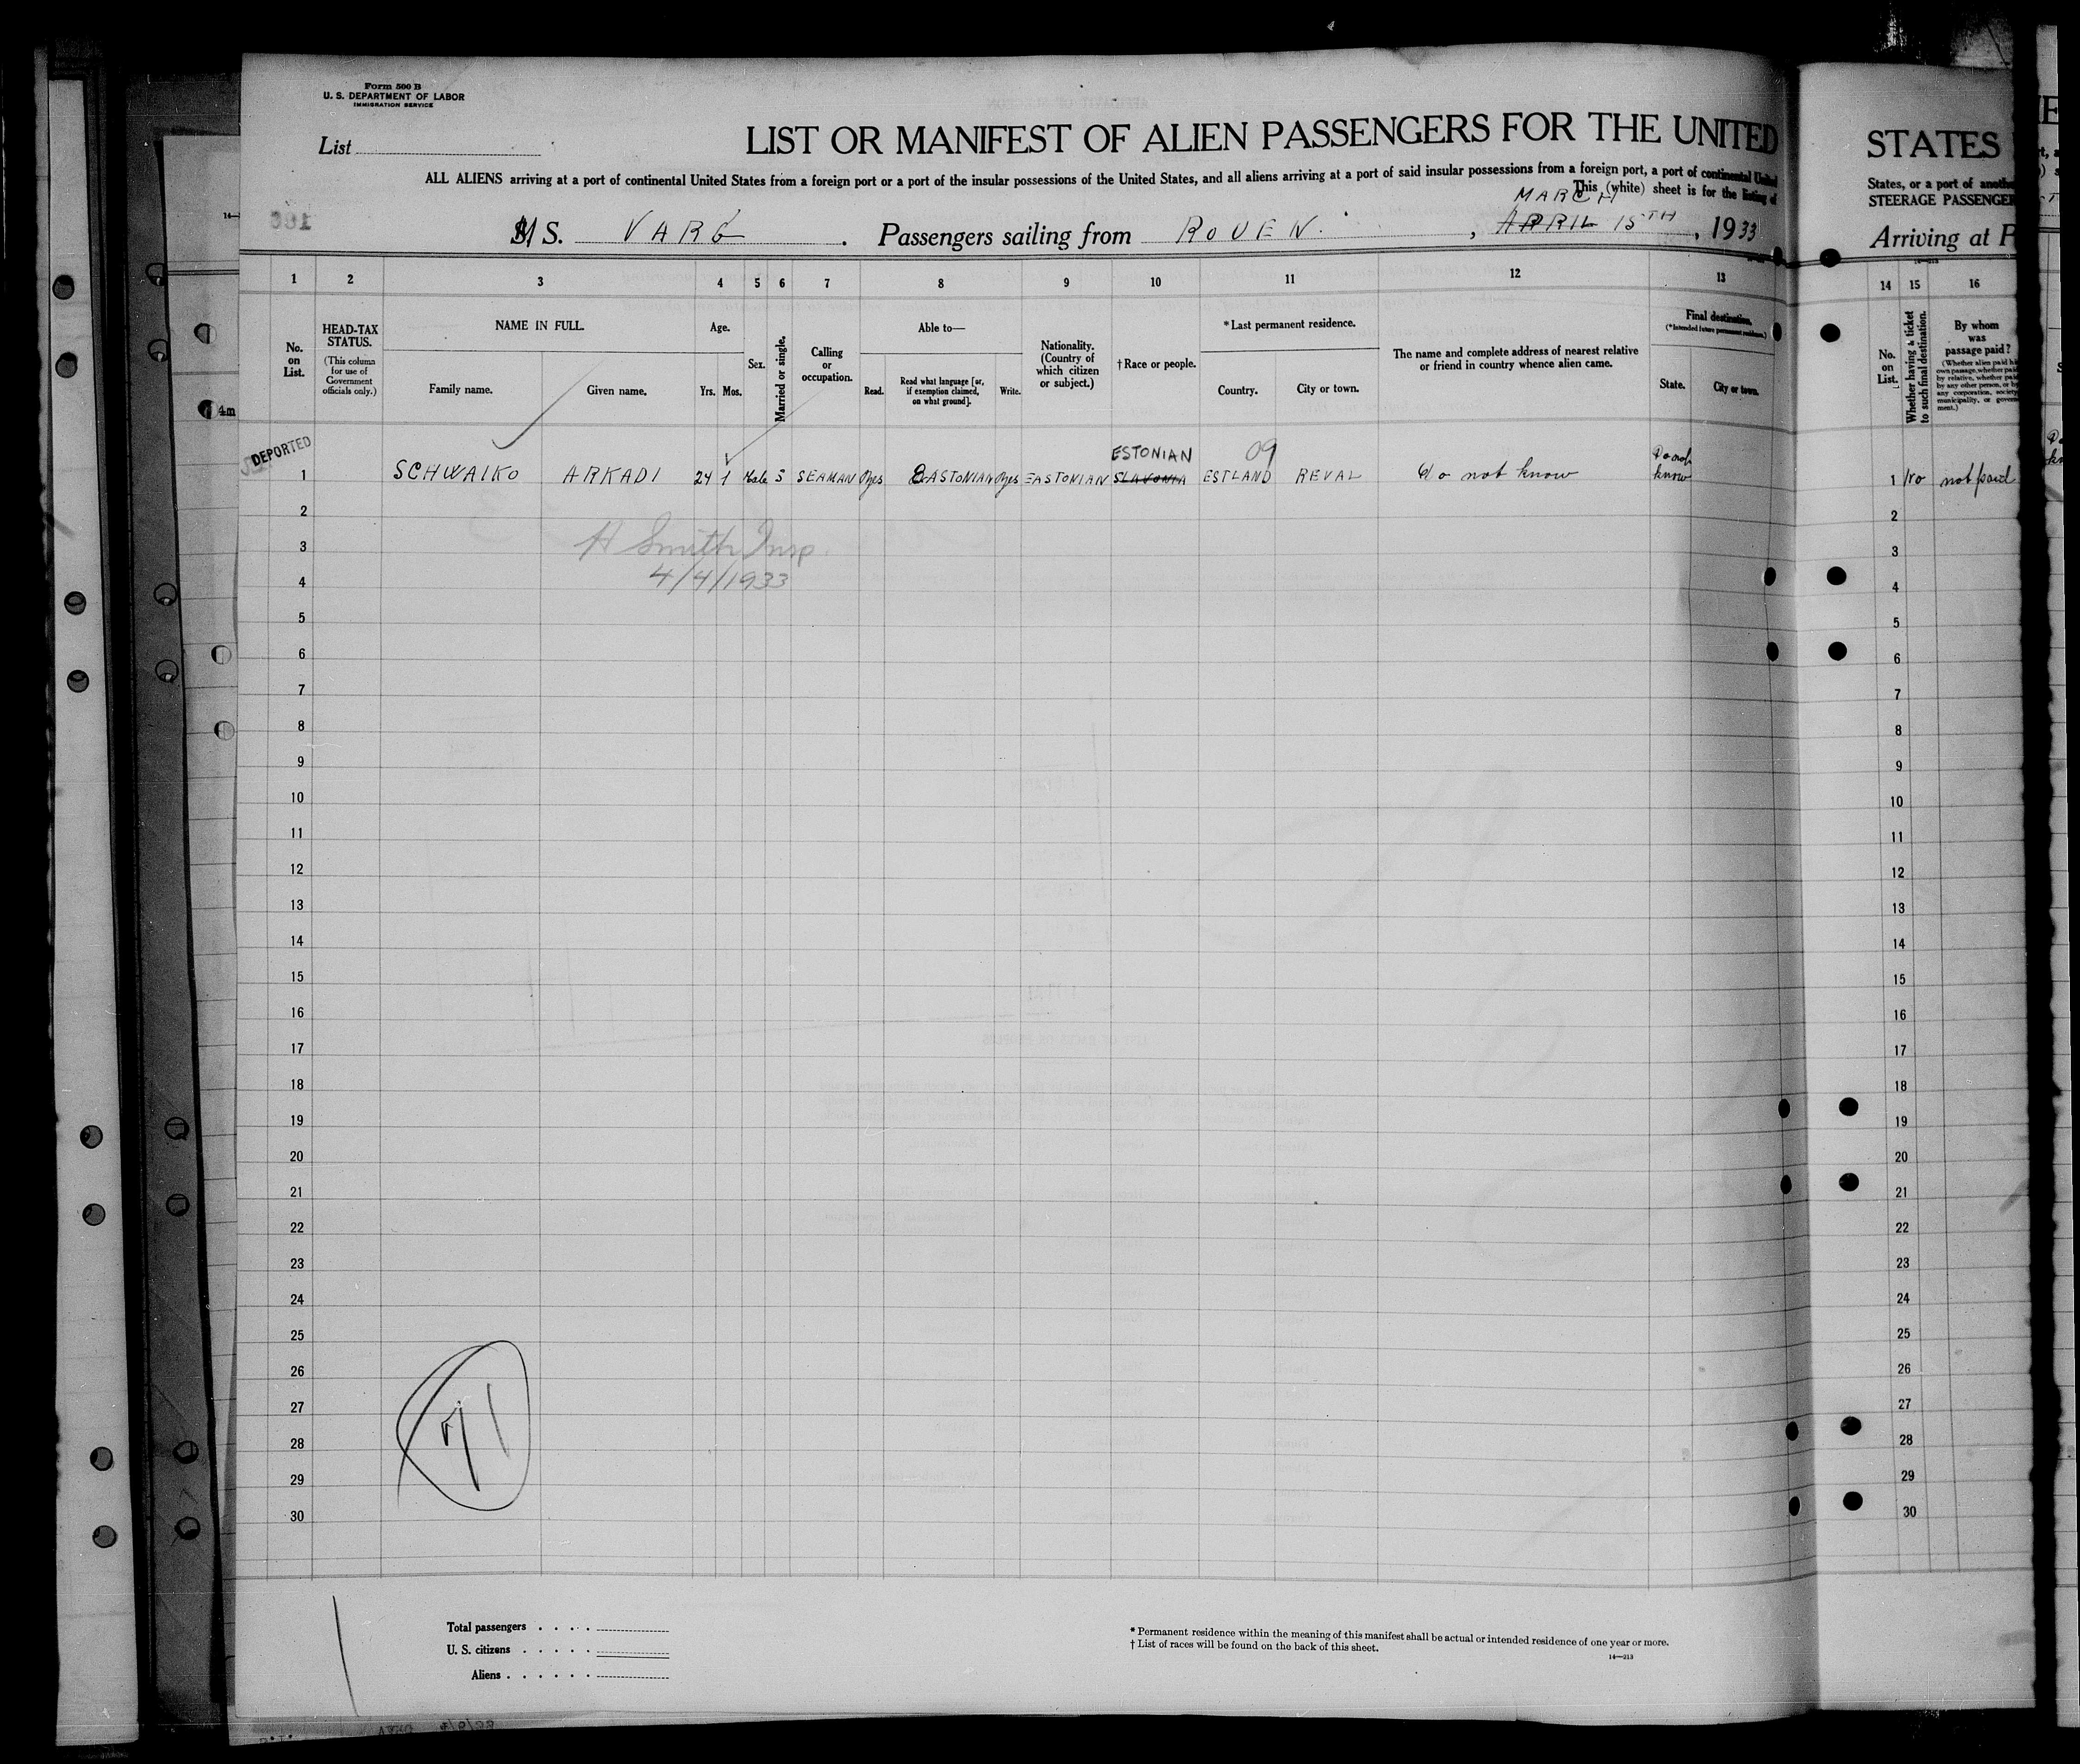 Form 500 B
U. S. DEPARTMENT OF LABOR
IMMIGRATION SERVICE
List
LIST OR MANIFEST OF ALIEN PASSENGERS FOR THE UNITED
ALL ALIENS arriving at a port of continental United States from a foreign port or a port of the insular possessions of the United States, and all aliens arriving at a port of said insular possessions from a foreign port, a port of continental United
This (white) sheet is for the listing of
MARCH
M S. VARG. Passengers sailing from ROUEN, APRIL 15TH, 1933
1 2 3 4 5 6 7 8 9 10 11 12 13
No. on List.
HEAD-TAX STATUS.
(This column for use of Government officials only.)
NAME IN FULL.
Family name. Given name.
Age.
Yrs. Mos.
Sex.
Married or single.
Calling or occupation.
Able to—
Read. Read what language [or, if exemption claimed, on what ground]. Write.
Nationality. (Country of which citizen or subject.)
†Race or people.
*Last permanent residence.
Country. City or town.
The name and complete address of nearest relative or friend in country whence alien came.
Final destination.
(*Intended future permanent residence.)
State. City or town.
DEPORTED
ESTONIAN 09
1 SCHWAIKO ARKADI 24 1 Male S SEAMAN yes EASTONIAN yes EASTONIAN SLAVONIA ESTLAND REVAL do not know Do not know
2
H Smith Insp.
3
4/4/1933
4
5
6
7
8
9
10
11
12
13
14
15
16
17
18
19
20
21
22
23
24
25
26
27
28
29
30
71
Total passengers
U. S. citizens
Aliens
* Permanent residence within the meaning of this manifest shall be actual or intended residence of one year or more.
† List of races will be found on the back of this sheet.
14—213
STATES
States, or a port of another
STEERAGE PASSENGER
Arriving at P
14 15 16
No. on List.
Whether having a ticket to such final destination.
By whom was passage paid?
1 no not paid
2
3
4
5
6
7
8
9
10
11
12
13
14
15
16
17
18
19
20
21
22
23
24
25
26
27
28
29
30